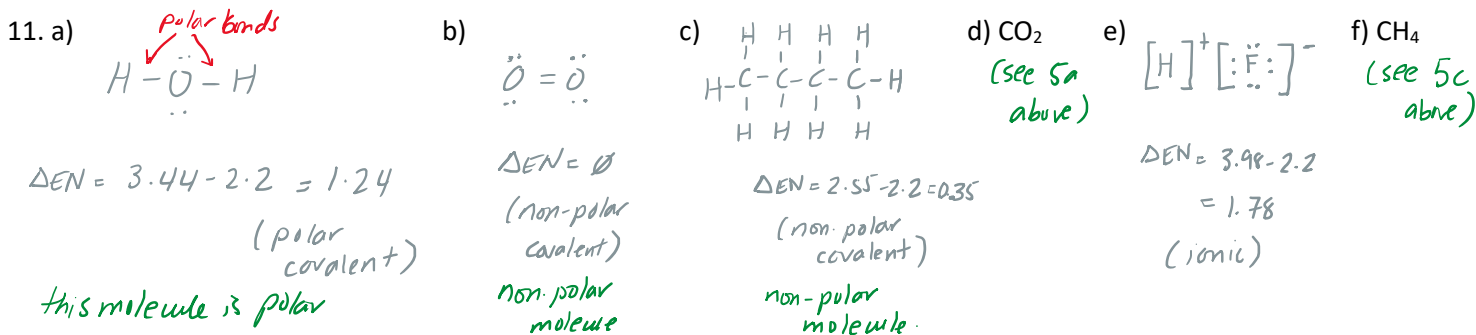 11. a)
polar bonds
H - O - H
ΔEN = 3.44 - 2.2 = 1.24
(polar
covalent)
this molecule is polar
b)
O = O
ΔEN = Ø
(non-polar
covalent)
non-polar
molecule
c)
H H H H
H-C-C-C-C-H
H H H H
ΔEN = 2.55-2.2=0.35
(non-polar
covalent)
non-polar
molecule.
d) CO₂
(see 5a
above)
e)
[H]⁺ [:F:]⁻
ΔEN = 3.98-2.2
= 1.78
(ionic)
f) CH₄
(see 5c
above)